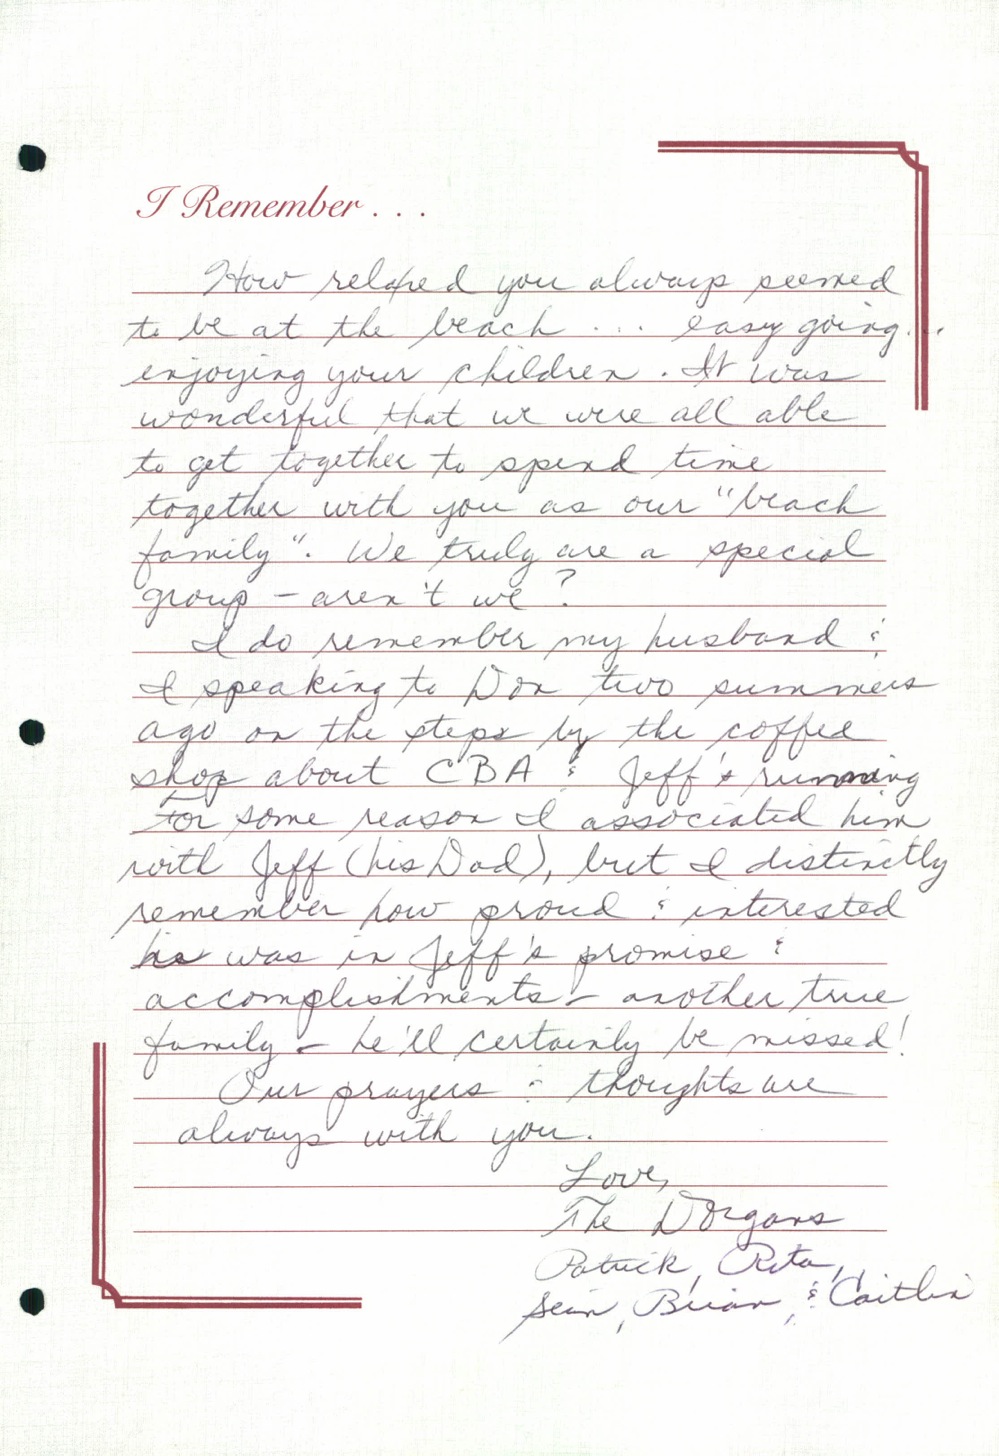 I Remember . . .
How relaxed you always seemed
to be at the beach ... easy going...
enjoying your children. It was
wonderful that we were all able
to get together to spend time
together with you as our "beach
family". We truly are a special
group - aren't we?
I do remember my husband &
I speaking to Don two summers
ago on the steps by the coffee
shop about CBA & Jeff's running
For some reason I associated him
with Jeff (his Dad), but I distinctly
remember how proud & interested
he was in Jeff's promise &
accomplishments - another true
family - he'll certainly be missed!
Our prayers & thoughts are
always with you.
Love,
The Dorgans
Patrick, Rita,
Sean, Brian, & Caitlin